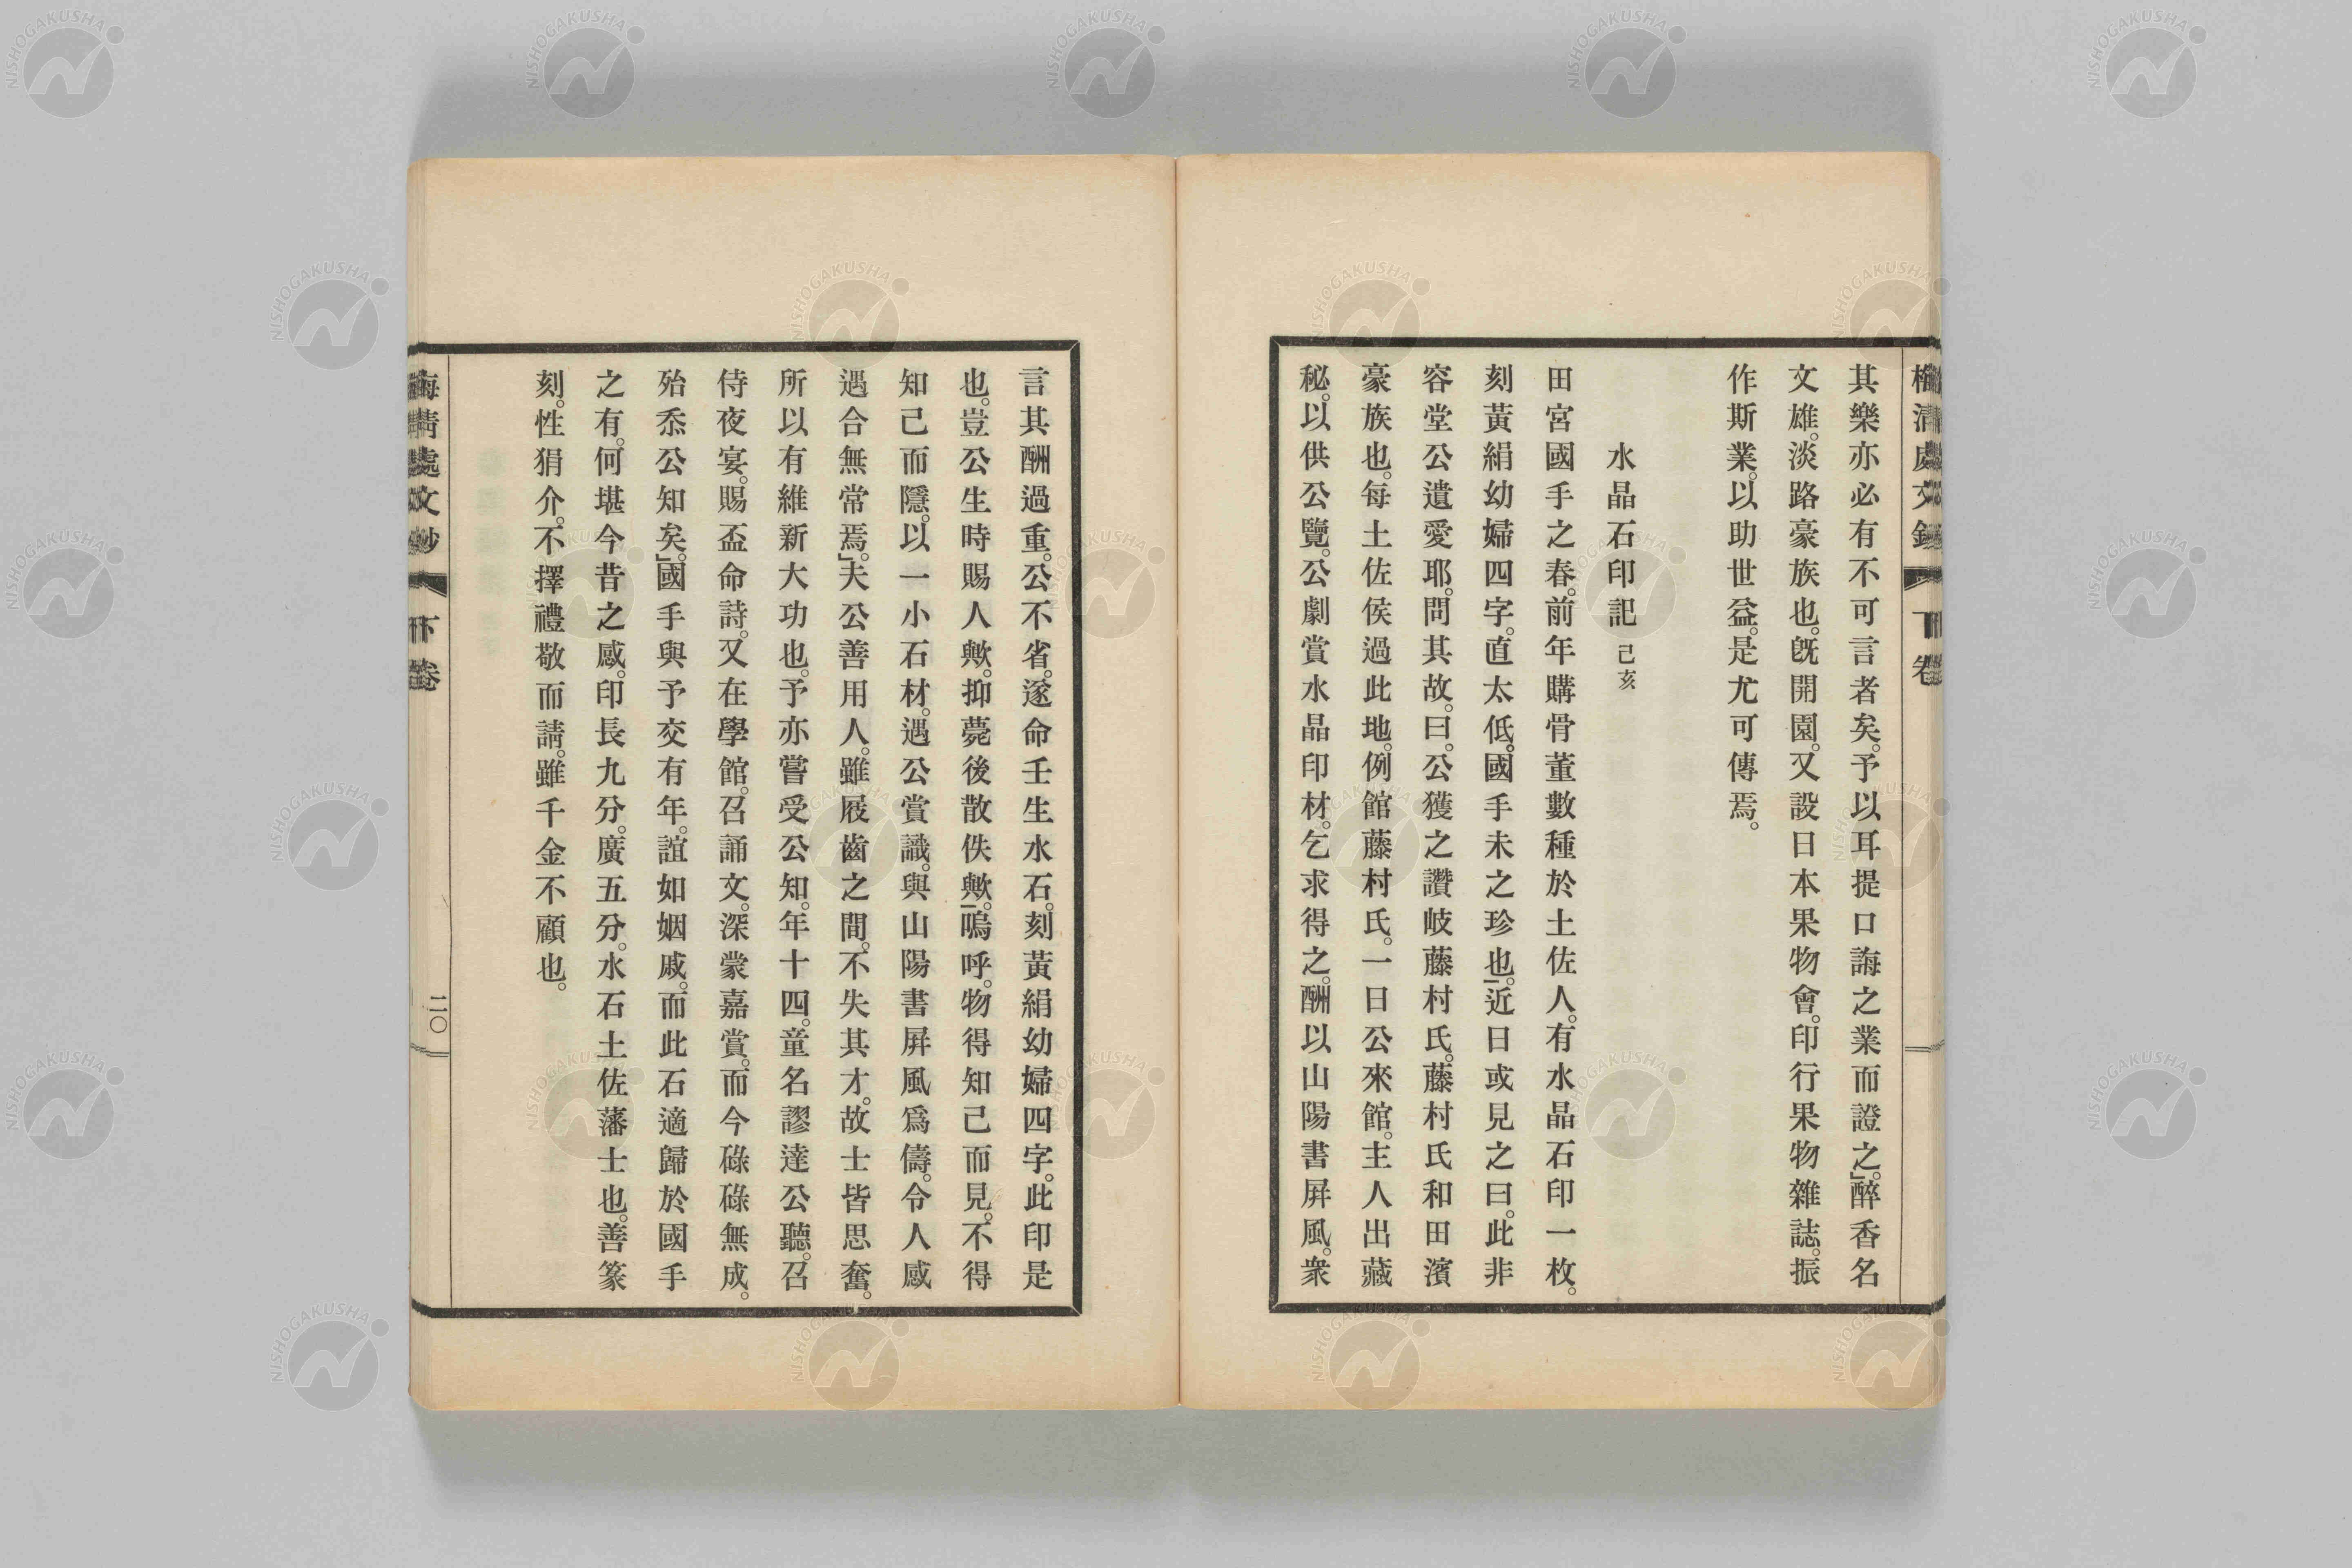 其樂亦必有不可言者矣。予以耳提口誨之業而證之。」醉香名
文雄。淡路豪族也。旣開園。又設日本果物會。印行果物雜誌。振
作斯業。以助世益。是尤可傳焉。
水晶石印記 己亥
田宮國手之春。前年購骨董數種於土佐人。有水晶石印一枚。
刻黃絹幼婦四字。直太低。國手未之珍也。」近日或見之曰。此非
容堂公遺愛耶。問其故。曰。公獲之讚岐藤村氏。藤村氏和田濱
豪族也。每土佐侯過此地。例館藤村氏。一日公來館。主人出藏
秘。以供公覽。公劇賞水晶印材。乞求得之。酬以山陽書屛風。衆
言其酬過重。公不省。遂命壬生水石。刻黃絹幼婦四字。此印是
也。豈公生時賜人歟。抑薨後散佚歟。」嗚呼。物得知己而見。不得
知己而隱。以一小石材。遇公賞識。與山陽書屛風爲儔。令人感
遇合無常焉。」夫公善用人。雖屐齒之間。不失其才。故士皆思奮。
所以有維新大功也。予亦嘗受公知。年十四。童名謬達公聽。召
侍夜宴。賜盃命詩。又在學館。召誦文。深蒙嘉賞。而今碌碌無成。
殆忝公知矣。」國手與予交有年。誼如姻戚。而此石適歸於國手
之有。何堪今昔之感。印長九分。廣五分。水石土佐藩士也。善篆
刻。性狷介。不擇禮敬而請。雖千金不顧也。
下卷
二〇